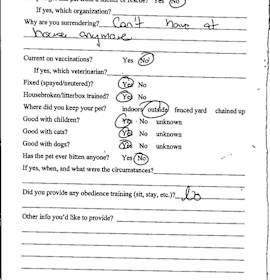 If yes, which organization?
Why are you surrendering? Can't have at
house anymore
Current on vaccinations? Yes No
If yes, which veterinarian?
Fixed (spayed/neutered)? Yes No
Housebroken/litterbox trained? Yes No
Where did you keep your pet? indoors outside fenced yard chained up
Good with children? Yes No unknown
Good with cats? Yes No unknown
Good with dogs? Yes No unknown
Has the pet ever bitten anyone? Yes No
If yes, when, and what were the circumstances?
Did you provide any obedience training (sit, stay, etc.)?
Other info you'd like to provide?